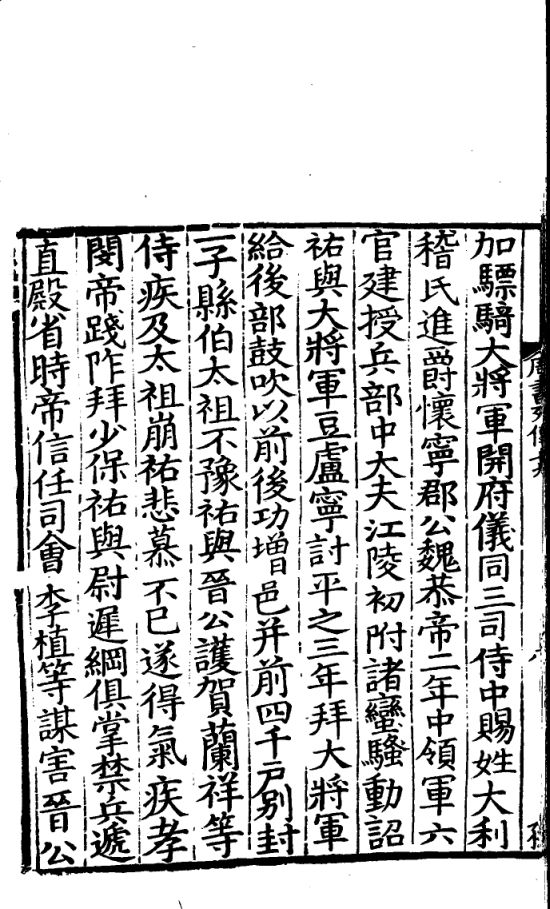 加驃騎大將軍開府儀同三司侍中賜姓大利
稽氏進爵懷寧郡公魏恭帝二年中領軍六
官建授兵部中大夫江陵初附諸蠻騷動詔
祐與大將軍豆盧寧討平之三年拜大將軍
給後部鼓吹以前後功增邑并前四千戶別封
一子縣伯太祖不豫祐與晉公護賀蘭祥等
侍疾及太祖崩祐悲慕不已遂得氣疾孝
閔帝踐阼拜少保祐與尉遲綱俱掌禁兵遞
直殿省時帝信任司會李植等謀害晉公